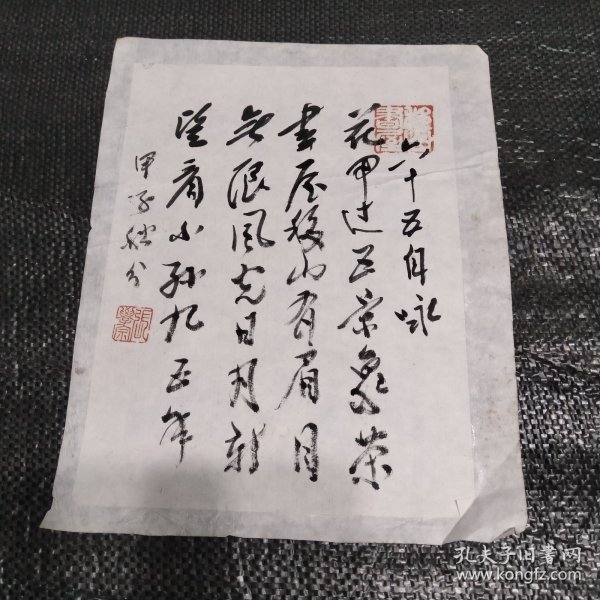 六十五自咏
花甲过五景象荣
书屋移山有眉目
无限风光日月新
望看小孙九五年
甲子
孔夫子旧书网
www.kongfz.com